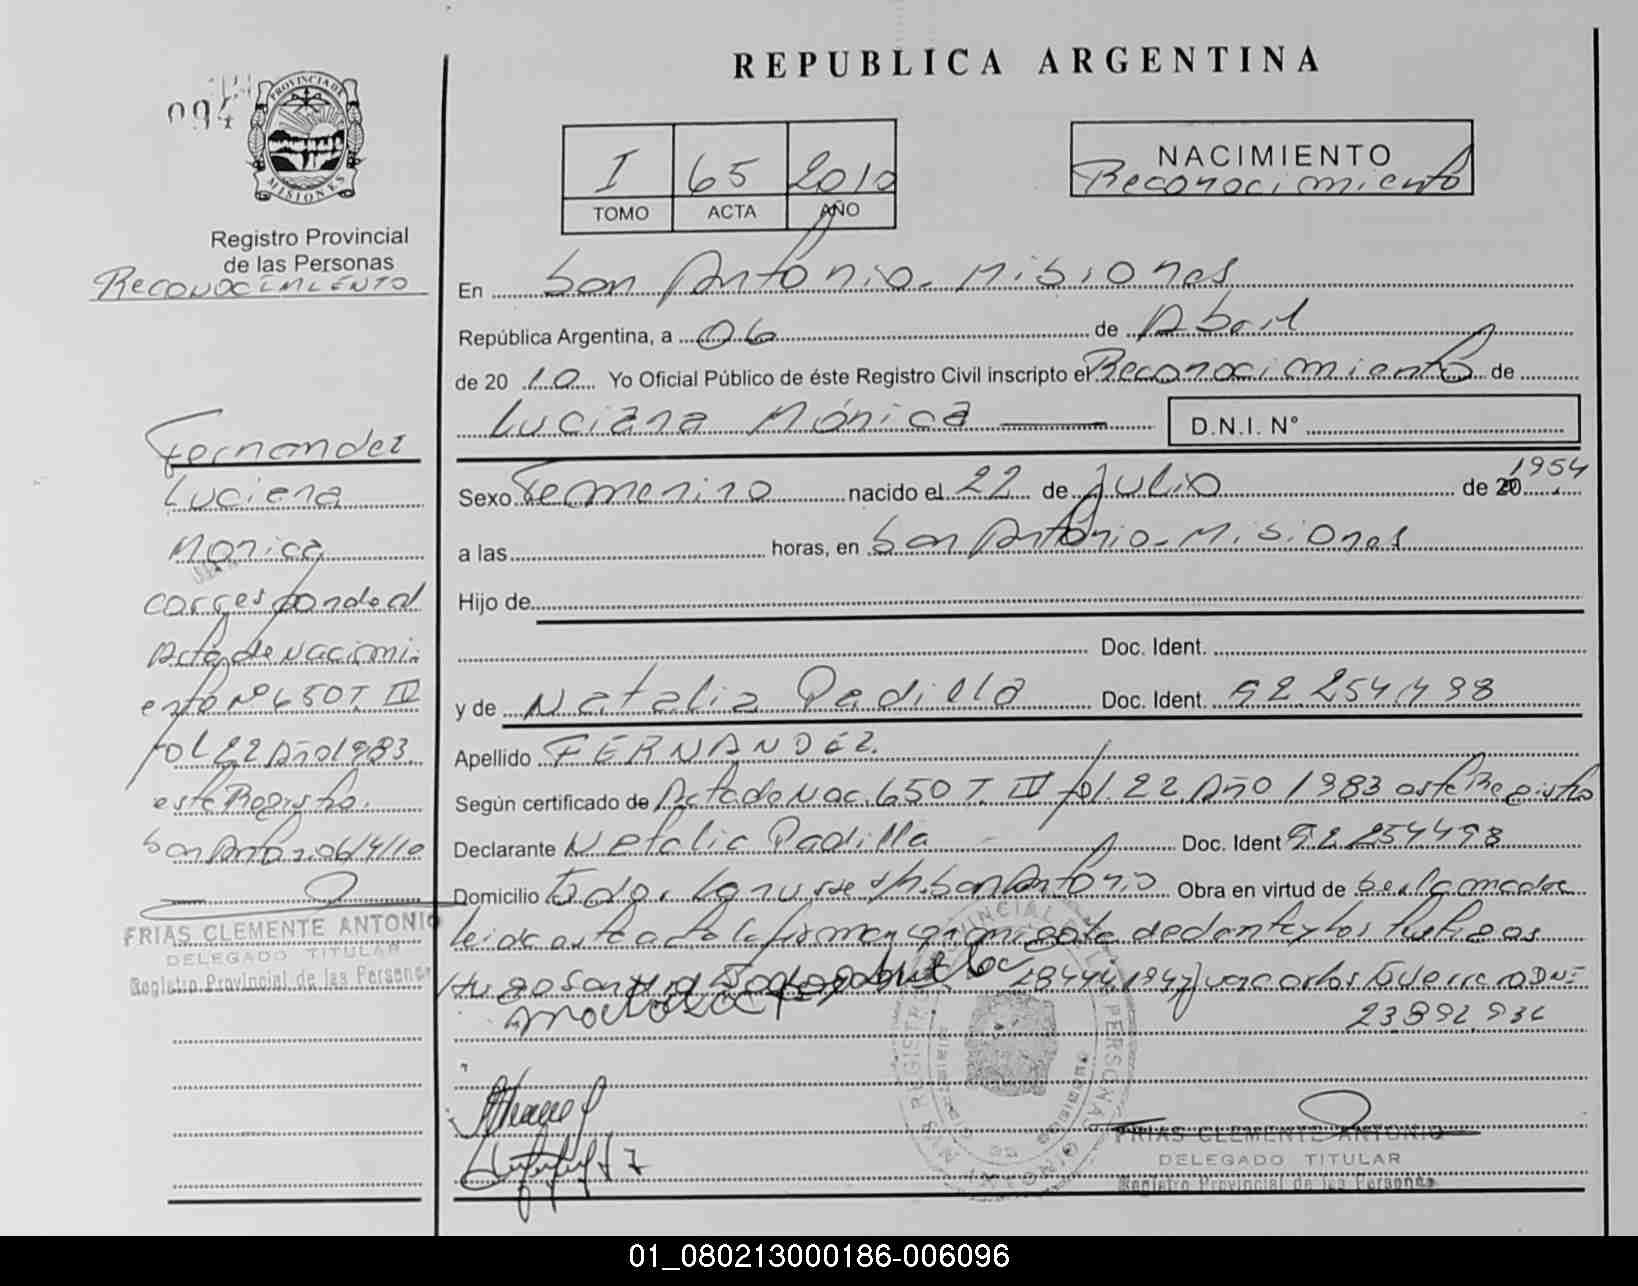 REPUBLICA ARGENTINA
PROVINCIA DE
MISIONES
Registro Provincial
de las Personas
Reconocimiento
I 65 2010
TOMO ACTA AÑO
NACIMIENTO
Reconocimiento
En San Antonio - Misiones
República Argentina, a 06 de Abril
de 2010 Yo Oficial Público de éste Registro Civil inscripto el Reconocimiento de
Luciana Mónica D.N.I. N°
Sexo Femenino nacido el 22 de Julio de 20 1954
a las horas, en San Antonio - Misiones
Hijo de
Doc. Ident.
y de Natalia Padilla Doc. Ident. 92.254.498
Apellido FERNANDEZ.
Según certificado de Acta de Nac. 650 T. IV fol. 22 Año 1983 este Registro
Declarante Natalia Padilla Doc. Ident 92.254498
Domicilio Gdor. Lanusse s/n. San Antonio Obra en virtud de ser llamado
leida este acto la firman conmigo la declarante y los testigos
Hugo 28444.194 y Juan Carlos Guerrero DNI
23.892.936
Fernandez
Luciana
Monica
corresponde al
Acta de Nacimi-
ento N° 650 T. IV
fol 22 Año 1983.
este Registro.
San Antonio 06/4/10
FRIAS CLEMENTE ANTONIO
DELEGADO TITULAR
Registro Provincial de las Personas
FRIAS CLEMENTE ANTONIO
DELEGADO TITULAR
Registro Provincial de las Personas
01_080213000186-006096